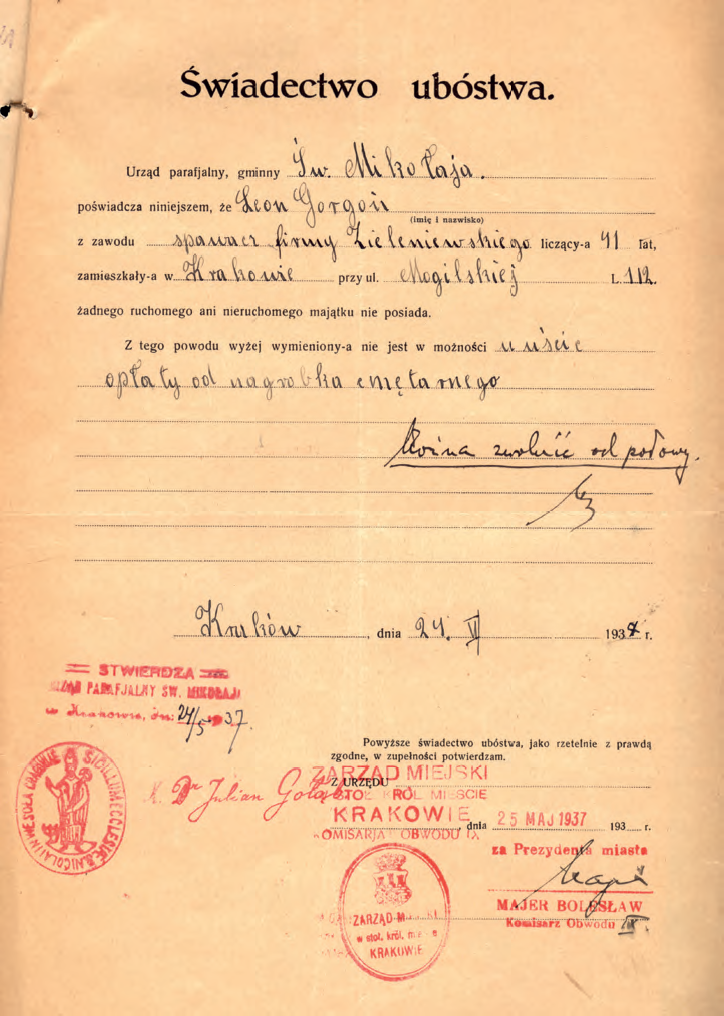 Świadectwo ubóstwa.
Urząd parafjalny, gminny Św. Mikołaja.
poświadcza niniejszem, że Leon Gorgoń
(imię i nazwisko)
z zawodu spawacz firmy Zieleniewskiego liczący-a 41 lat,
zamieszkały-a w Krakowie przy ul. Mogilskiej L. 112.
żadnego ruchomego ani nieruchomego majątku nie posiada.
Z tego powodu wyżej wymieniony-a nie jest w możności uiście
opłaty od nagrobka cmętarnego
Można zwolnić od połowy.
Kraków, dnia 24. V 1937 r.
STWIERDZA
URZĄD PARAFJALNY ŚW. MIKOŁAJA
w Krakowie, dn: 24/5 1937.
Powyższe świadectwo ubóstwa, jako rzetelnie z prawdą
zgodne, w zupełności potwierdzam.
Z URZĘDU
ZARZĄD MIEJSKI
STOŁ KRÓL MIEŚCIE
KRAKOWIE
KOMISARJA OBWODU IX
, dnia 25 MAJ 1937 193 r.
X. Dr Julian Gołąb
za Prezydenta miasta
MAJER BOLESŁAW
Komisarz Obwodu IX.
SIGILLUM ECCLESIAE S. NICOLAI IN WESOŁA CRACOVIAE
ZARZĄD
w stoł. król. m
KRAKOWIE